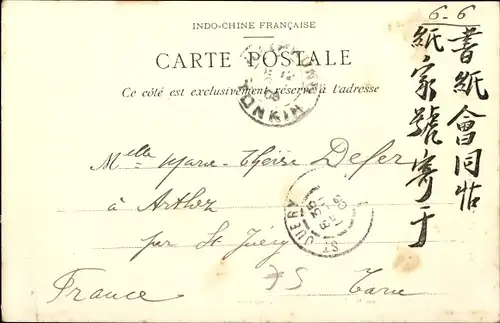 INDO-CHINE FRANÇAISE
CARTE POSTALE
Ce côté est exclusivement réservé à l'adresse
TONKIN
Melle Marie-Thérèse Defer
à Arthez
par St Juéry
Tarn
France
ST JUERY
75
6-6
書紙會同帖
紙家號寄于